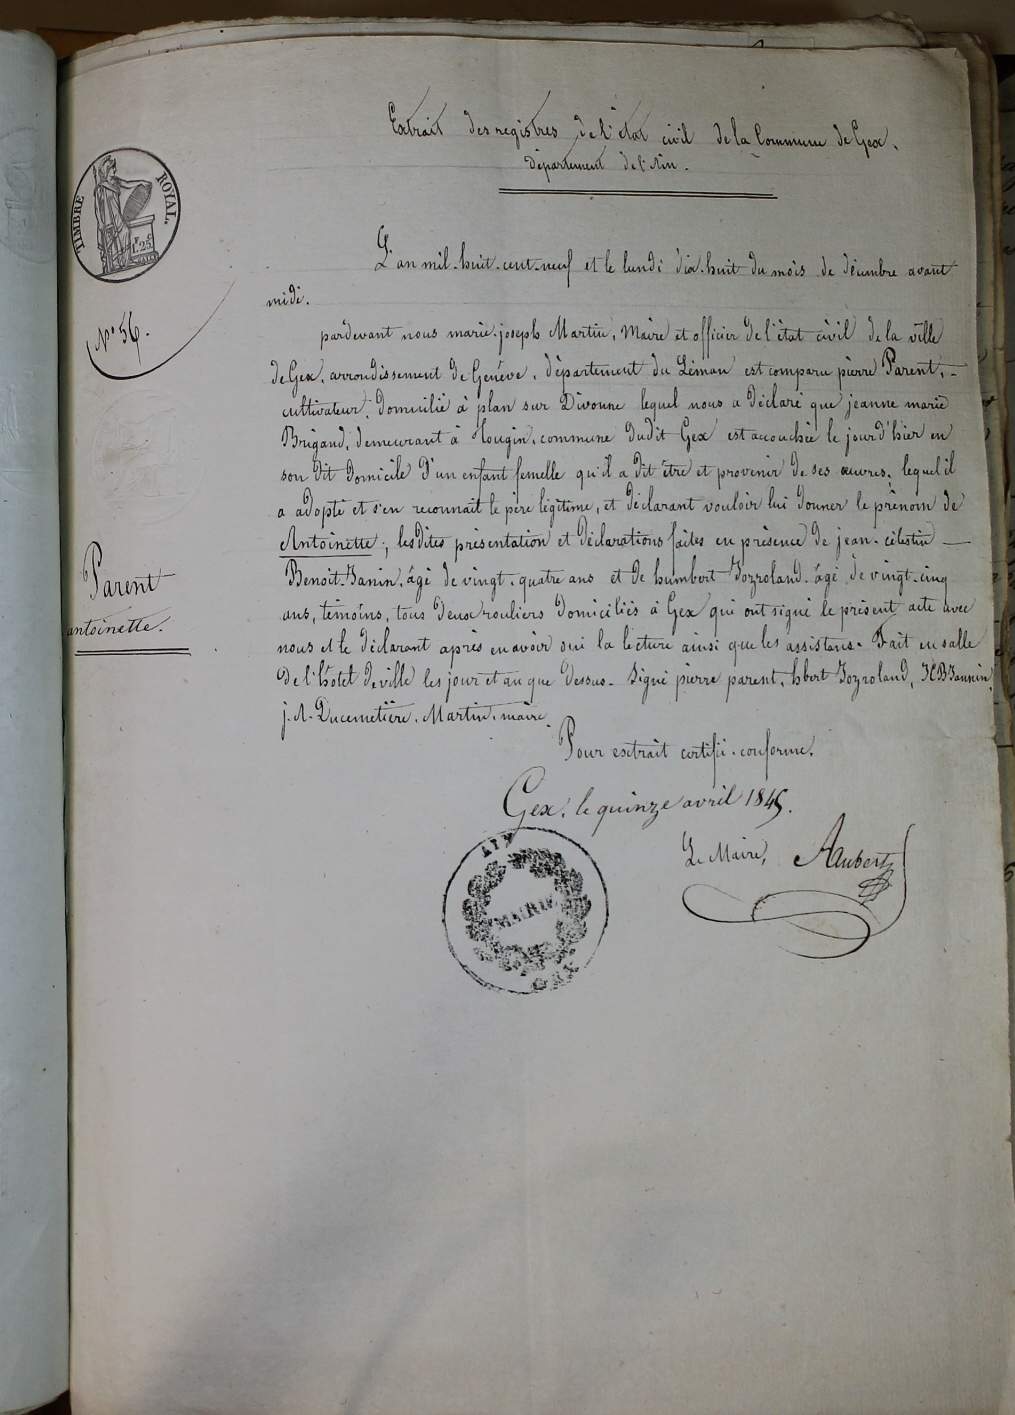 Extrait des registres de l'état civil de la Commune de Gex,
département de l'Ain.
TIMBRE ROYAL.
1F.25C
L'an mil-huit-cent-neuf et le lundi dix-huit du mois de décembre avant
midi.
N° 56.
pardevant nous marie-joseph Martin, Maire et officier de l'état civil de la ville
de Gex, arrondissement de Genève, département du Léman est comparu pierre Parent,
cultivateur, domicilié à plan sur Divonne lequel nous a déclaré que jeanne marie
Brigand, demeurant à Tougin, commune dudit Gex est accouchée le jour d'hier en
son dit domicile d'un enfant femelle qu'il a dit être et provenir de ses œuvres, lequel il
a adopté et s'en reconnait le père légitime, et déclarant vouloir lui donner le prénom de
Antoinette; lesdites présentation et déclarations faites en présence de jean-célestin
Benoit-Janin, âgé de vingt-quatre ans et de humbert Jozroland, âgé de vingt-cinq
Parent
antoinette.
ans, témoins, tous deux rouliers domiciliés à Gex qui ont signé le présent acte avec
nous et le déclarant après en avoir oui la lecture ainsi que les assistans. Fait en salle
de l'hôtel de ville les jour et an que dessus. Signé pierre parent, hbert Jozroland, JCBJannin,
j. A. Ducemetière, Martin, maire.
Pour extrait certifié conforme.
Gex, le quinze avril 1845.
Le Maire, Aaubert
AIN
MAIRIE
GEX